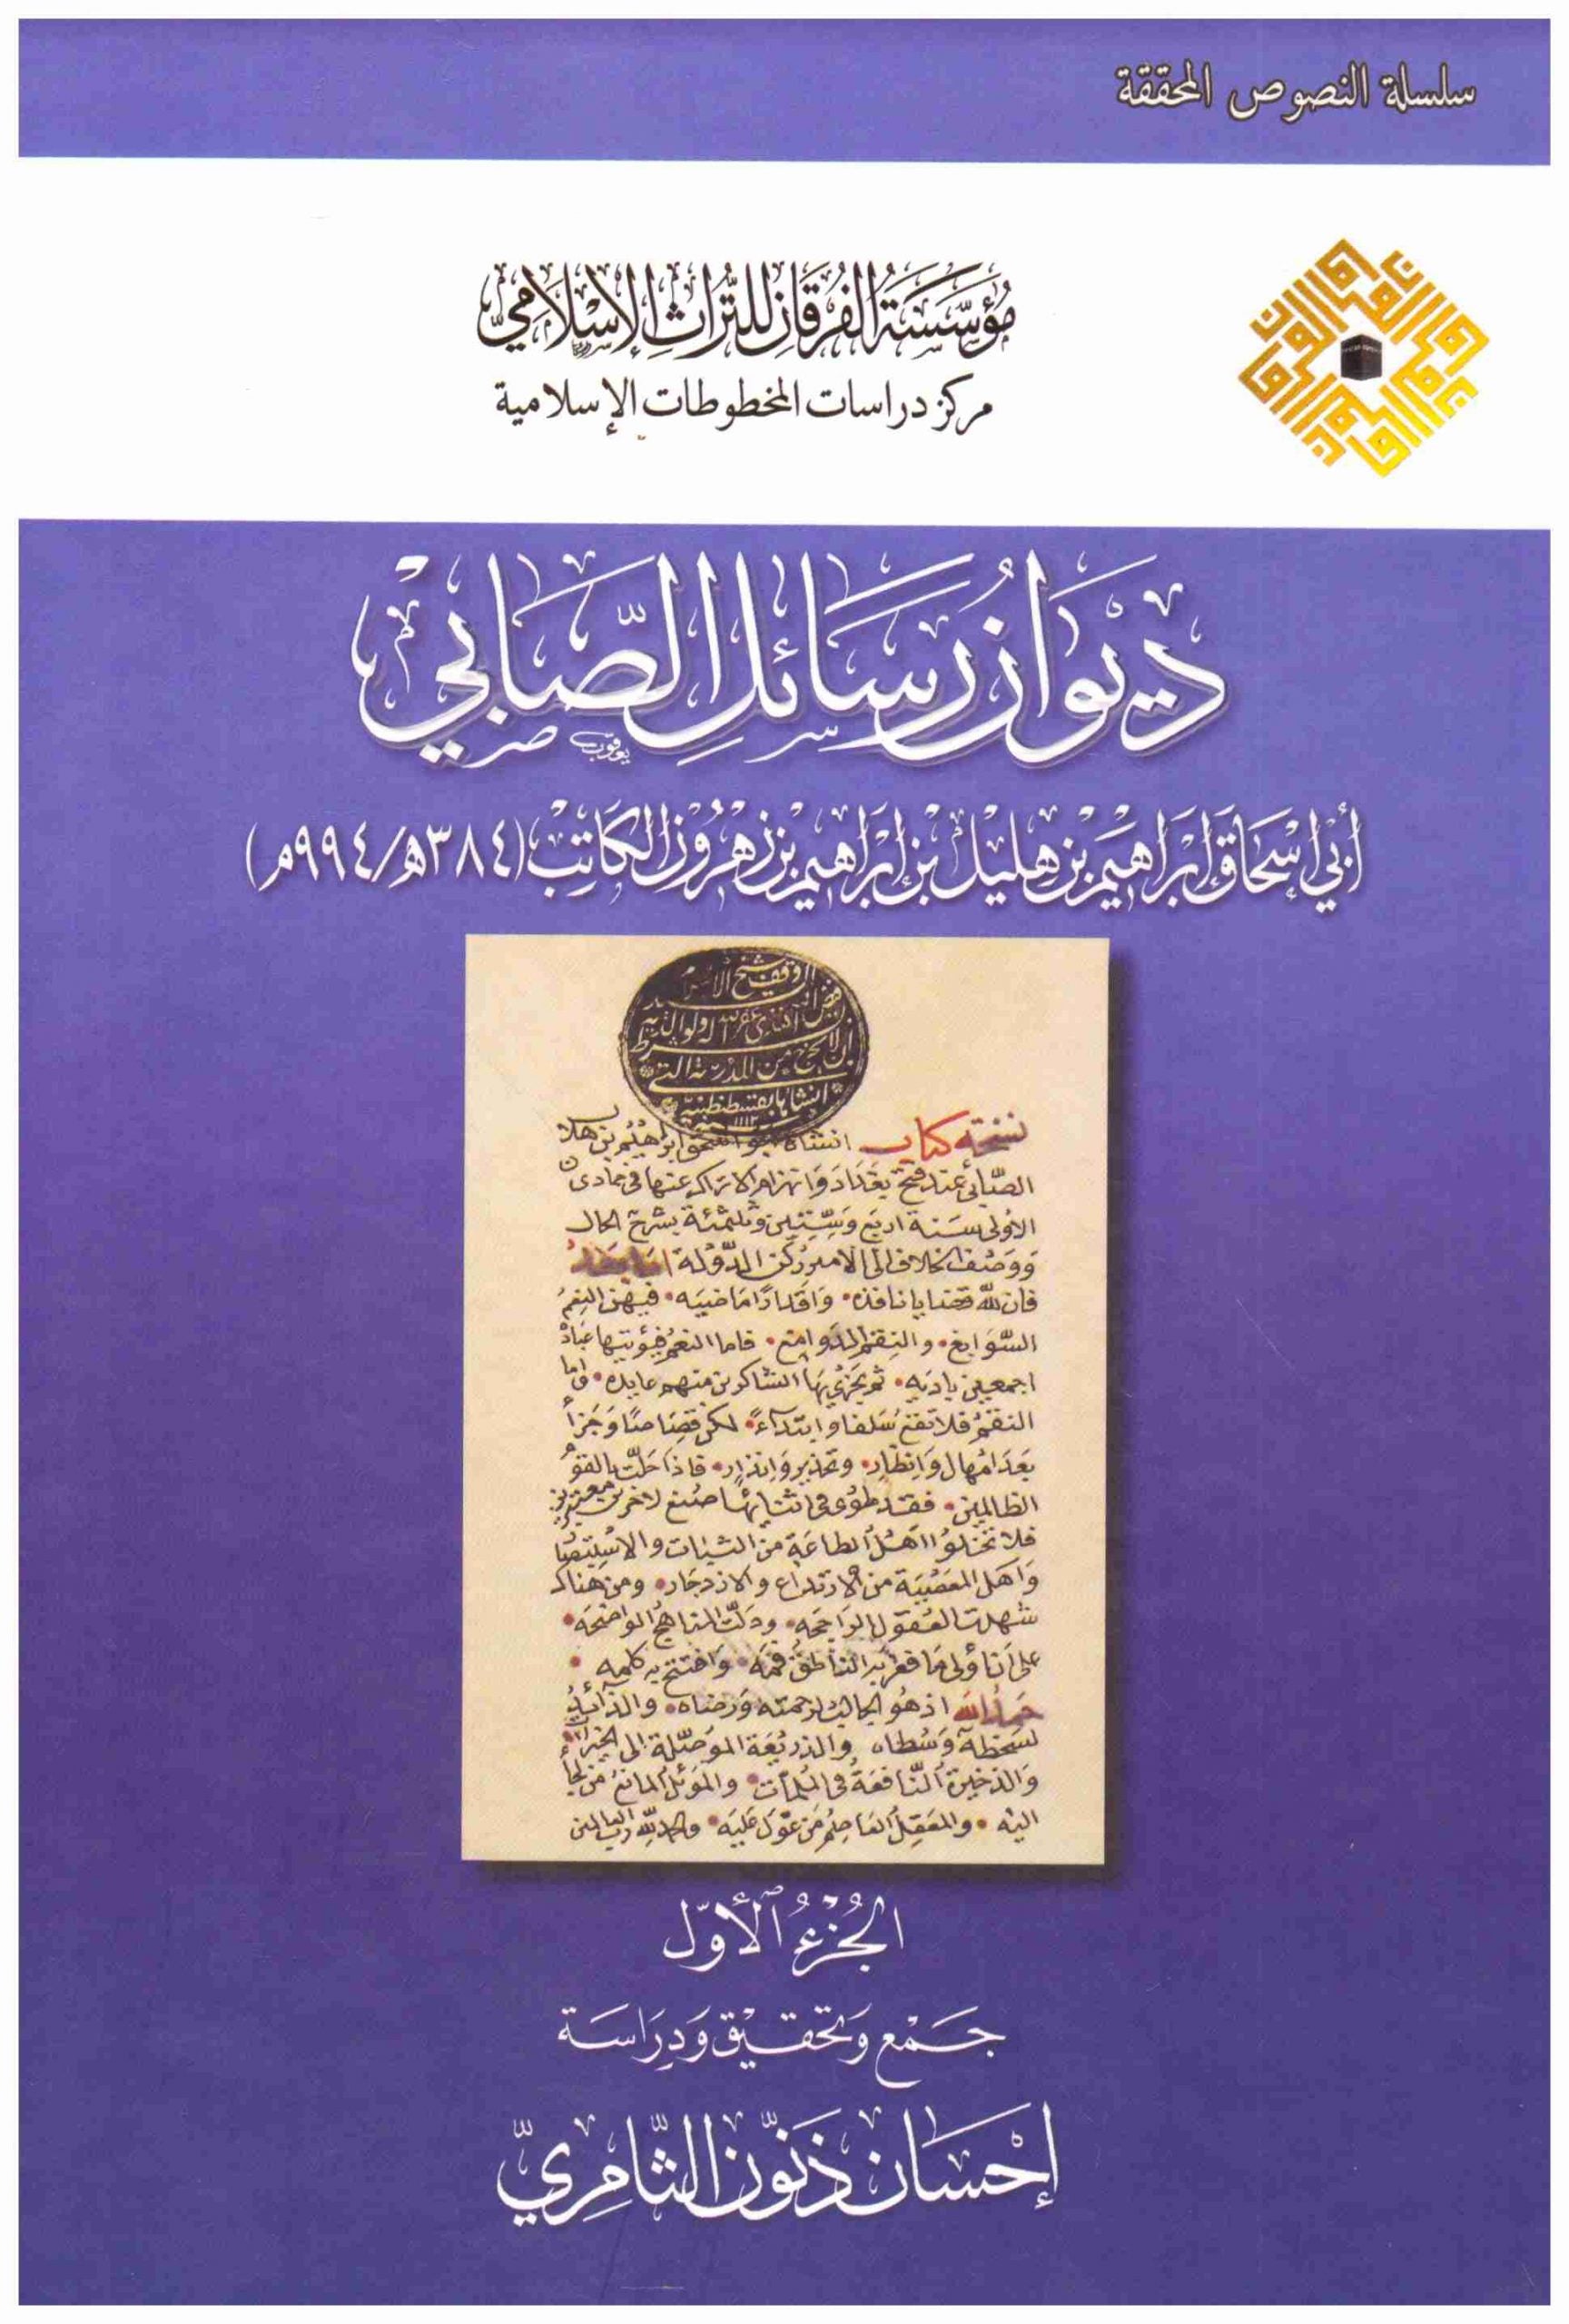 سلسلة النصوص المحققة
مؤسَّسَةُ الفُرقَانِ للتُّراثِ الإسْلَامِيِّ
مركز دراسات المخطوطات الإسلامية
ديوَانُ رسَائلِ الصَّابيْ
أبي إسْحَاقَ إبرَاهيمَ بن هليْل بْن إبرَاهيم بْن زهرُونَ الكَاتِبْ (٣٨٤هـ/٩٩٤م)
نسخة كتاب انشاه ابو اسحق ابراهيم بن هلا
الصّابي عند فتح بغداد وانهزام الاتراك عنها في جمادى
الاولى سنة اربع وستين وثلثمئة يشرح الحال
ووصف الخلاف الى الامير ركن الدّولة اما بعد
فان لله قضايا نافذه • واقدارًا ماضيه • فيهن النعمُ
السّوابغ • والنقم الدوامغ • فاما النعمُ فيؤتيها عبادهُ
اجمعين باديه • ثم يجزي بها الشاكرين منهم عايده • واما
النقمُ فلا تقع سلفا وابتدآءً • لكن قصاصًا وجزاءً
بعد امهال وانظار • وتحذير وانذار • فاذا حلّت بالقوم
الظالمين • فقد طوى في اثنايها صنع لاخرين معتبرين
فلا تخلوا اهل الطاعة من الثبات والاستبصا
واهل المعصية من الارتداع والازدجار • ومن هناك
شهدت العقول الراجحه • ودلّت المناهج الواضحه •
على ان اولى ما فغر به الناطق فمه • وافتتح به كلمه •
حمد الله اذ هو الجالب لرحمته ورضاه • والذائد
لسخطه وسطاه والذريعة الموصّلة الى الخيرات
والذخيرة النّافعة في الملمات • والموئل المانع من لجأ
اليه • والمعقل العاصم من عوّل عليه • والحمد لله رب العالمين
الجُزءُ الأوّل
جَمْع وَتحقيْق وَدِرَاسَة
إحْسَان ذَنّون الثّامِريّ